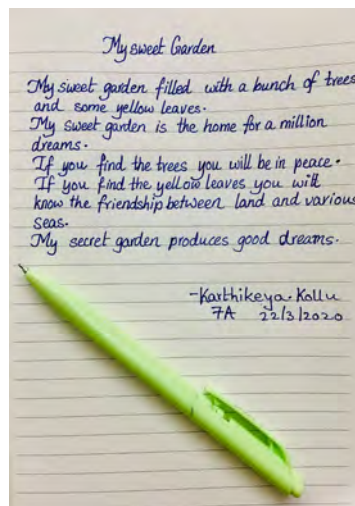 My sweet Garden
My sweet garden filled with a bunch of trees
and some yellow leaves.
My sweet garden is the home for a million
dreams.
If you find the trees you will be in peace.
If you find the yellow leaves you will
know the friendship between land and various
seas.
My secret garden produces good dreams.
-Karthikeya.Kollu
7A 22/3/2020